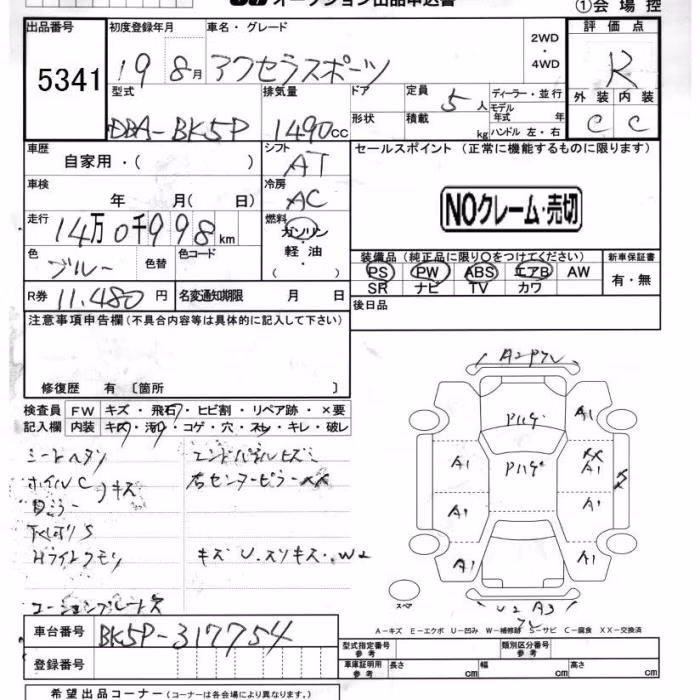 オークション出品申込書
①会場控
出品番号
5341
初度登録年月
19 8月
車名・グレード
アクセラスポーツ
2WD・4WD
評価点
R
外装 内装
C C
型式
DBA-BK5P
排気量
1490cc
ドア
形状
定員 5人
積載 kg
ディーラー・並行
モデル年式 年
ハンドル 左・右
車歴
自家用・( )
シフト
AT
セールスポイント (正常に機能するものに限ります)
NOクレーム・売切
車検
年 月( 日)
冷房
AC
走行
14万0千998km
燃料
ガソリン
軽・油
( )
色
ブルー
色替
色コード
装備品(純正品に限り〇をつけてください)
PS PW ABS エアB AW
SR ナビ TV カワ
新車保証書
有・無
R券 11,480円
名変通知期限 月 日
後日品
注意事項申告欄(不具合内容等は具体的に記入して下さい)
修復歴 有〔箇所 〕
検査員記入欄
FW キズ・飛石・ヒビ割・リペア跡・×要
内装 キズ・汚・コゲ・穴・スレ・キレ・破レ
シートヘタリ
ホイルC
キズ
下まわりS
Hライトクモリ
コーションプレートス
エンドパネルヒズミ
右センターピラーXX
キズ U.スリキズ..W2
A2
A1
A1
XX
A1
A1
A1
A1
A1
U2 A3
スペア
A-キズ E-エクボ U-凹み W-補修跡 S-サビ C-腐食 XX-交換済
車台番号
BK5P-317754
登録番号
型式指定番号 参考
類別区分番号 参考
車庫証明用 参考
長さ cm
幅 cm
高さ cm
希望出品コーナー(コーナーは各会場により異なります。)